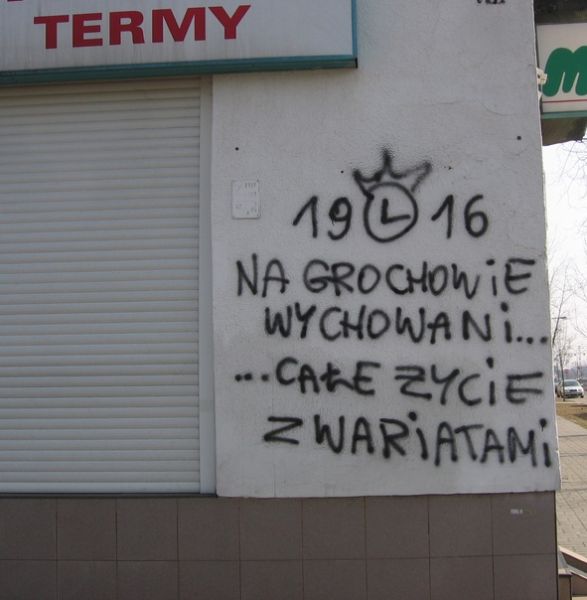 TERMY
M
19 L 16
NA GROCHOWiE
WYCHOWANi...
...CAŁE ŻYCiE
Z WARiATAMi